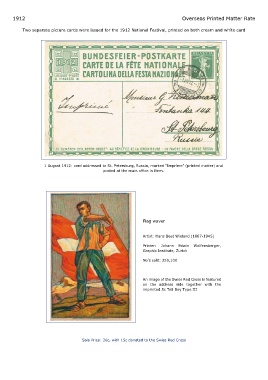 1912
Overseas Printed Matter Rate
Two separate picture cards were issued for the 1912 National Festival, printed on both cream and white card
BUNDESFEIER-POSTKARTE
CARTE DE LA FÊTE NATIONALE
CARTOLINA DELLA FESTA NAZIONALE
Imprimé
Monsieur G.
St. Petersbourg
Russie
1 August 1912: card addressed to St. Petersburg, Russia, marked "Imprimé" (printed matter) and
posted at the main office in Bern.
Flag waver
Artist: Hans Beat Wieland (1867-1945)
Printer: Johann Edwin Wolfensberger,
Graphic Institute, Zurich
No's sold:
An image of the Swiss Red Cross is featured
on the address side together with the
imprinted 5c Tell Boy Type III
Sale Price: 20c, with 15c donated to the Swiss Red Cross